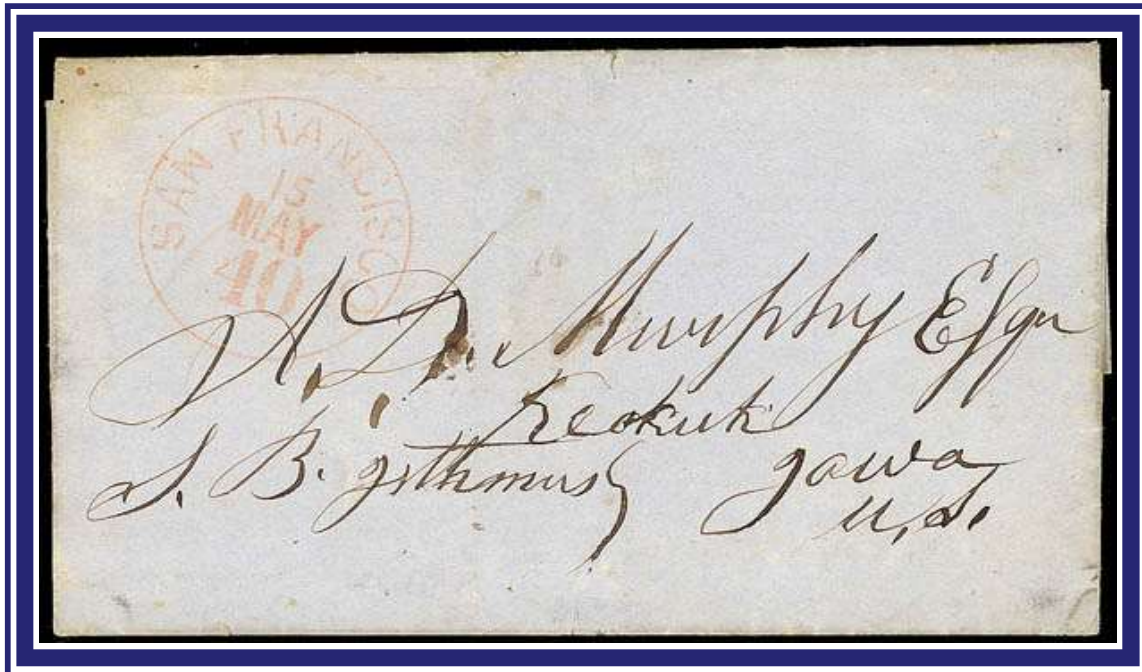 SAN FRANCISCO
15
MAY
40
A. D. Murphy Esqr
Keokuk
S. B. Isthmus Iowa
U.S.